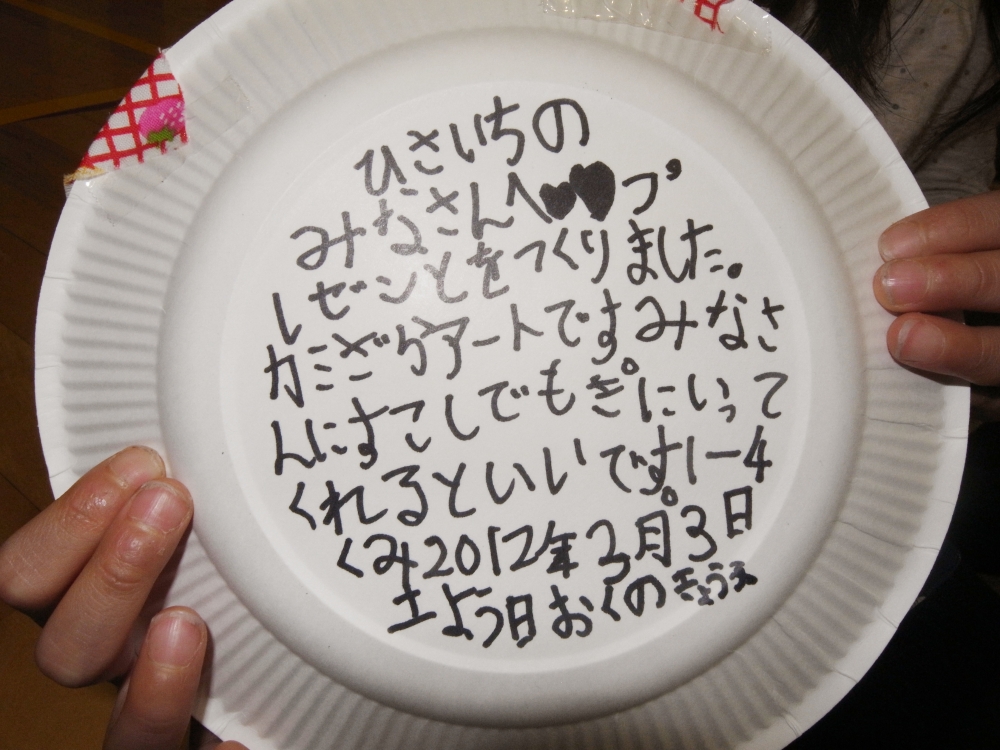 ひさいちの
みなさんへ♥♥プ
レゼンとをつくりました。
カミざらアートです。みなさ
んにすこしでもきにいって
くれるといいです。1-4
くみ2012年3月3日
土よう日おくの